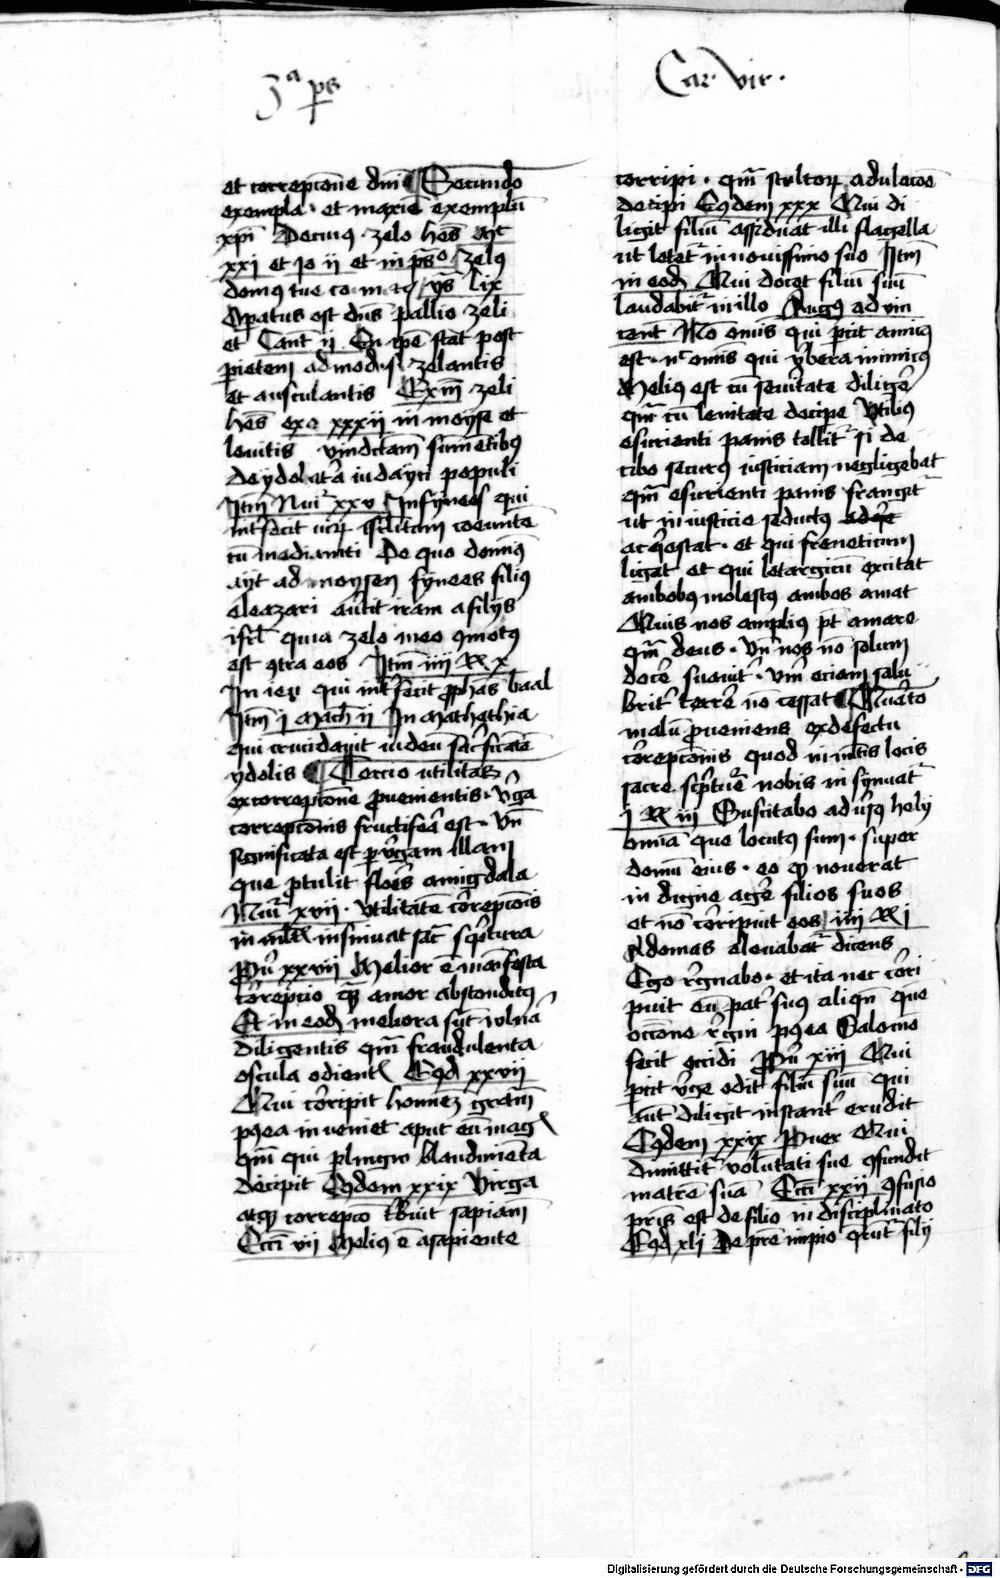 3ª ps
Car. vir.
et correpcōne dnī Secundo
exempla · et maxīe exemplū
xpī Decimꝯ zelo hēs mt
xxj et Jo ii et in ps° zelꝯ
domꝯ tue comet ys lix
Opatus est dn̄s pallio zeli
et Cant ij En ipē stat post
pietem ad modū zelantis
et ausculantis Exm̄ zeli
hēs exo xxxij in moyse et
leuitis vindictam sumētibꝯ
de ydolatra iudayci populi
Itm̄ Nui xxv In fynees qui
intfecit uirꝝ isrlitam coeuntē
cū medianiti De quo domīꝯ
ayt ad moysen fynees filiꝯ
eleazari aūtit iram a filijs
isrl̄ quia zelo meo ꝯmotꝯ
est ꝯtra eos Itm̄ iiij Rx x
In ieu qui intfecit ꝓphas baal
Itm̄ j Mach ij In Mathathia
qui trucidauit iudeū sacficātē
ydolis Tercio utilitas
ex correpcōne ꝓuenientis · vga
correpcōnis fructifea est · Vn̄
significata est ꝑ vgam illam
que ꝓtulit floēs amigdala
Nuī xvij · Vtilitatē correpcōis
in mltꝭ insinuat sac scptura
Pū xxvij Melior ē manifesta
correpcio qꝫ amor absconditꝯ
Et in eod meliora sūt vlnā
diligentis qm̄ fraudulenta
oscula odientꝭ Eod xxviij
Qui corripit homīeꝫ gram̄
postea inueniet aput eū magꝭ
qm̄ qui ꝑ lingw blandimēta
decipit Eodem xxix Virga
atqꝫ correpcō tbuit sapiam̄
Ecci vij Meliꝯ ē a sapiente
corripi · qm̄ stultorꝝ adulacōe
decipi Eodem xxx Qui di
ligit filiū assiduat illi flagella
ut letet in nouissimo suo Itm̄
in eod Qui docet filiū suū
laudabit in illo Augꝯ ad vin
cent Nō omis qui pcit amicꝯ
est · nc omis qui vbera inimicꝯ
Meliꝯ est cū seuitate diligē
qm̄ cū lenitate decipe Vtiliꝯ
esurienti panis tollit si de
cibo securꝯ iusticiam negligebat
qm̄ esurienti panis frangit
ut iniusticie seductꝯ
acqestat · et qui freneticum
ligat et qui letargicū excitat
ambobꝯ molestꝯ ambos amat
Quis nos ampliꝯ pt amare
qm̄ deus · Vn̄ nos nō solum
docē suauit · vm̄ eciam salu
brit terrē nō cessat Quarto
malū ꝓueniens ex defectu
correpcōnis quod in mltis locis
sacre scptue nobis insinuat
j R iij Suscitabo aduersꝯ hely
omīa que locutꝯ sum · super
domū eius · eo qꝫ nouerat
indigne agē filios suos
et nō coripuit eos iiij R j
Adomas eleuabat dicens
Ego regnabo · et ita nec cori
puit eū pat suꝯ aliqn̄ que
occōne regni postea Salomō
fecit occidi Pū xiij Qui
pcit vge odit filiū suū qui
aut diligit instant erudit
Eodem xxix Puer Qui
dimittit voluntati sue ꝯfundit
matrē suā Ecci xxij ꝯfusio
pris est de filio indisciplinato
Eod xlj De prē impio qrunt filij
Digitalisierung gefördert durch die Deutsche Forschungsgemeinschaft · DFG